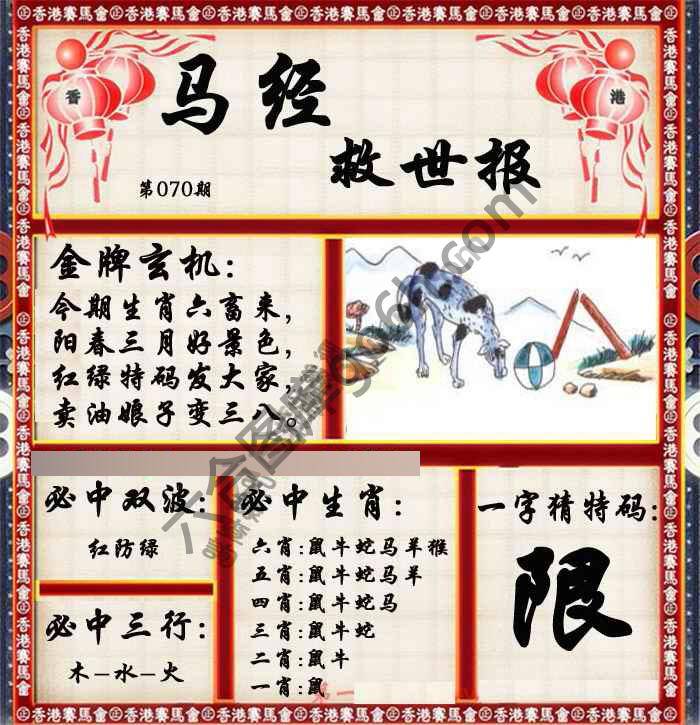 香港賽馬會
香 港
马经
救世报
第070期
金牌玄机：
今期生肖六畜来，
阳春三月好景色，
红绿特码发大家，
卖油娘子变三八。
必中双波：
红防绿
必中三行：
木-水-火
必中生肖：
六肖:鼠牛蛇马羊猴
五肖:鼠牛蛇马羊
四肖:鼠牛蛇马
三肖:鼠牛蛇
二肖:鼠牛
一肖:鼠
一字猜特码:
限
六合图库